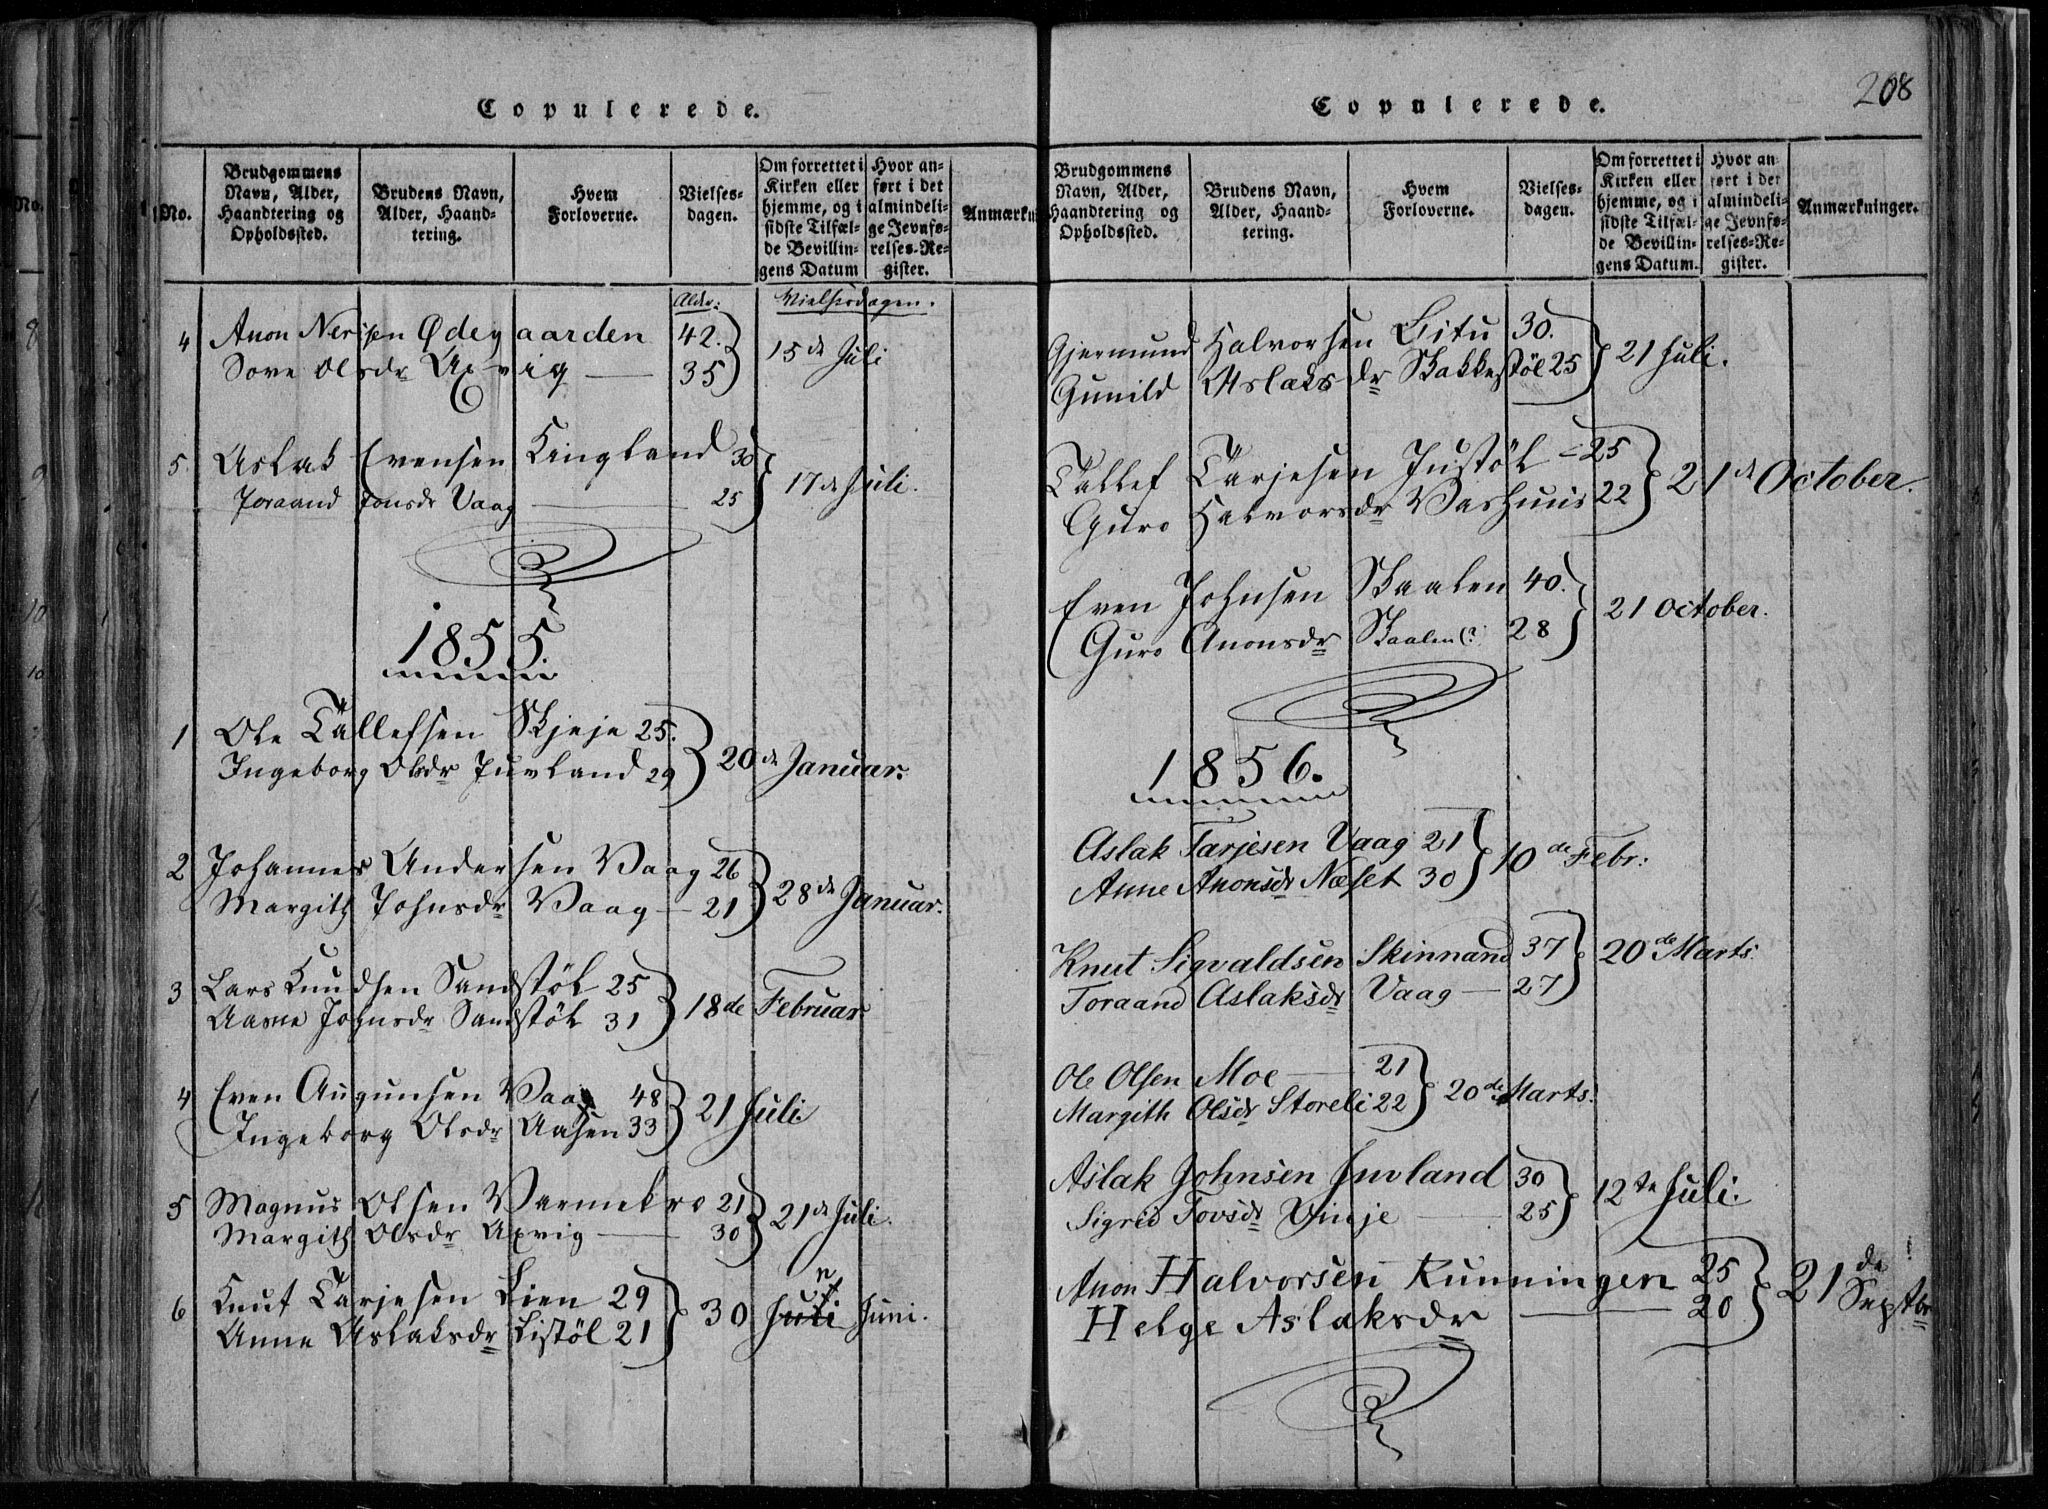 208
Copulerede.
No.
Brudgommens Navn, Alder, Haandtering og Opholdssted.
Brudens Navn, Alder, Haandtering.
Hvem Forloverne.
Vielses-dagen.
Om forrettet i Kirken eller hjemme, og i sidste Tilfælde Bevillingens Datum
Hvor anført i det almindelige Jevnførelses-Register.
Anmærkn
Alder: Vielsesdagen.
4 Anon Nerisen Ødegaarden 42.
Sove Olsdr Axvig — 35 15de Juli
5 Aslak Evensen Kingland 30
Joraand Jonsdr Vaag — 25 17de Juli.
1855.
1 Ole Tallefsen Skjeje 25.
Ingeborg Olsdr Juvland 29 20de Januar.
2 Johannes Andersen Vaag 26
Margith Johnsdr Vaag — 21 28de Januar.
3 Lars Knudsen Sandstöl 25
Aasne Johnsdr Sandstöl 31 18de Februar
4 Even Augunsen Vaag 48
Ingeborg Olsdr Aasen 33 21 Juli
5 Magnus Olsen Varmekro 21
Margith Olsdr Axvig — 30 21de Juli.
6 Knut Tarjesen Lien 29
Anne Aslaksdr Listöl 21 30 Juli n Juni.
Copulerede.
Brudgommens Navn, Alder, Haandtering og Opholdssted.
Brudens Navn, Alder, Haandtering.
Hvem Forloverne.
Vielses-dagen.
Om forrettet i Kirken eller hjemme, og i sidste Tilfælde Bevillingens Datum.
Hvor anført i det almindelige Jevnførelses-Register.
Anmærkninger.
Gjermund Halvorsen Bitu 30.
Gunild Aslaksdr Bakkestöl 25 21 Juli.
Tallef Tarjesen Justöl = 25
Guro Halvorsdr Vashuus 22 21de October.
Even Johnsen Skaalen 40.
Guro Anonsdr Skaalen (?) 28 21 October.
1856.
Aslak Tarjesen Vaag 21
Anne Anonsdr Næset 30 10de Febr:
Knut Sigvaldsen Skinnand 37
Toraand Aslaksdr Vaag — 27 20de Marts.
Ole Olsen Moe — 21
Margith Olsdr Storeli 22 20de Marts.
Aslak Johnsen Juvland 30
Sigrid Tovsdr Vinje — 25 12te Juli.
Anon Halvorsen Runningen 25
Helge Aslaksdr — 20 21de Septbr